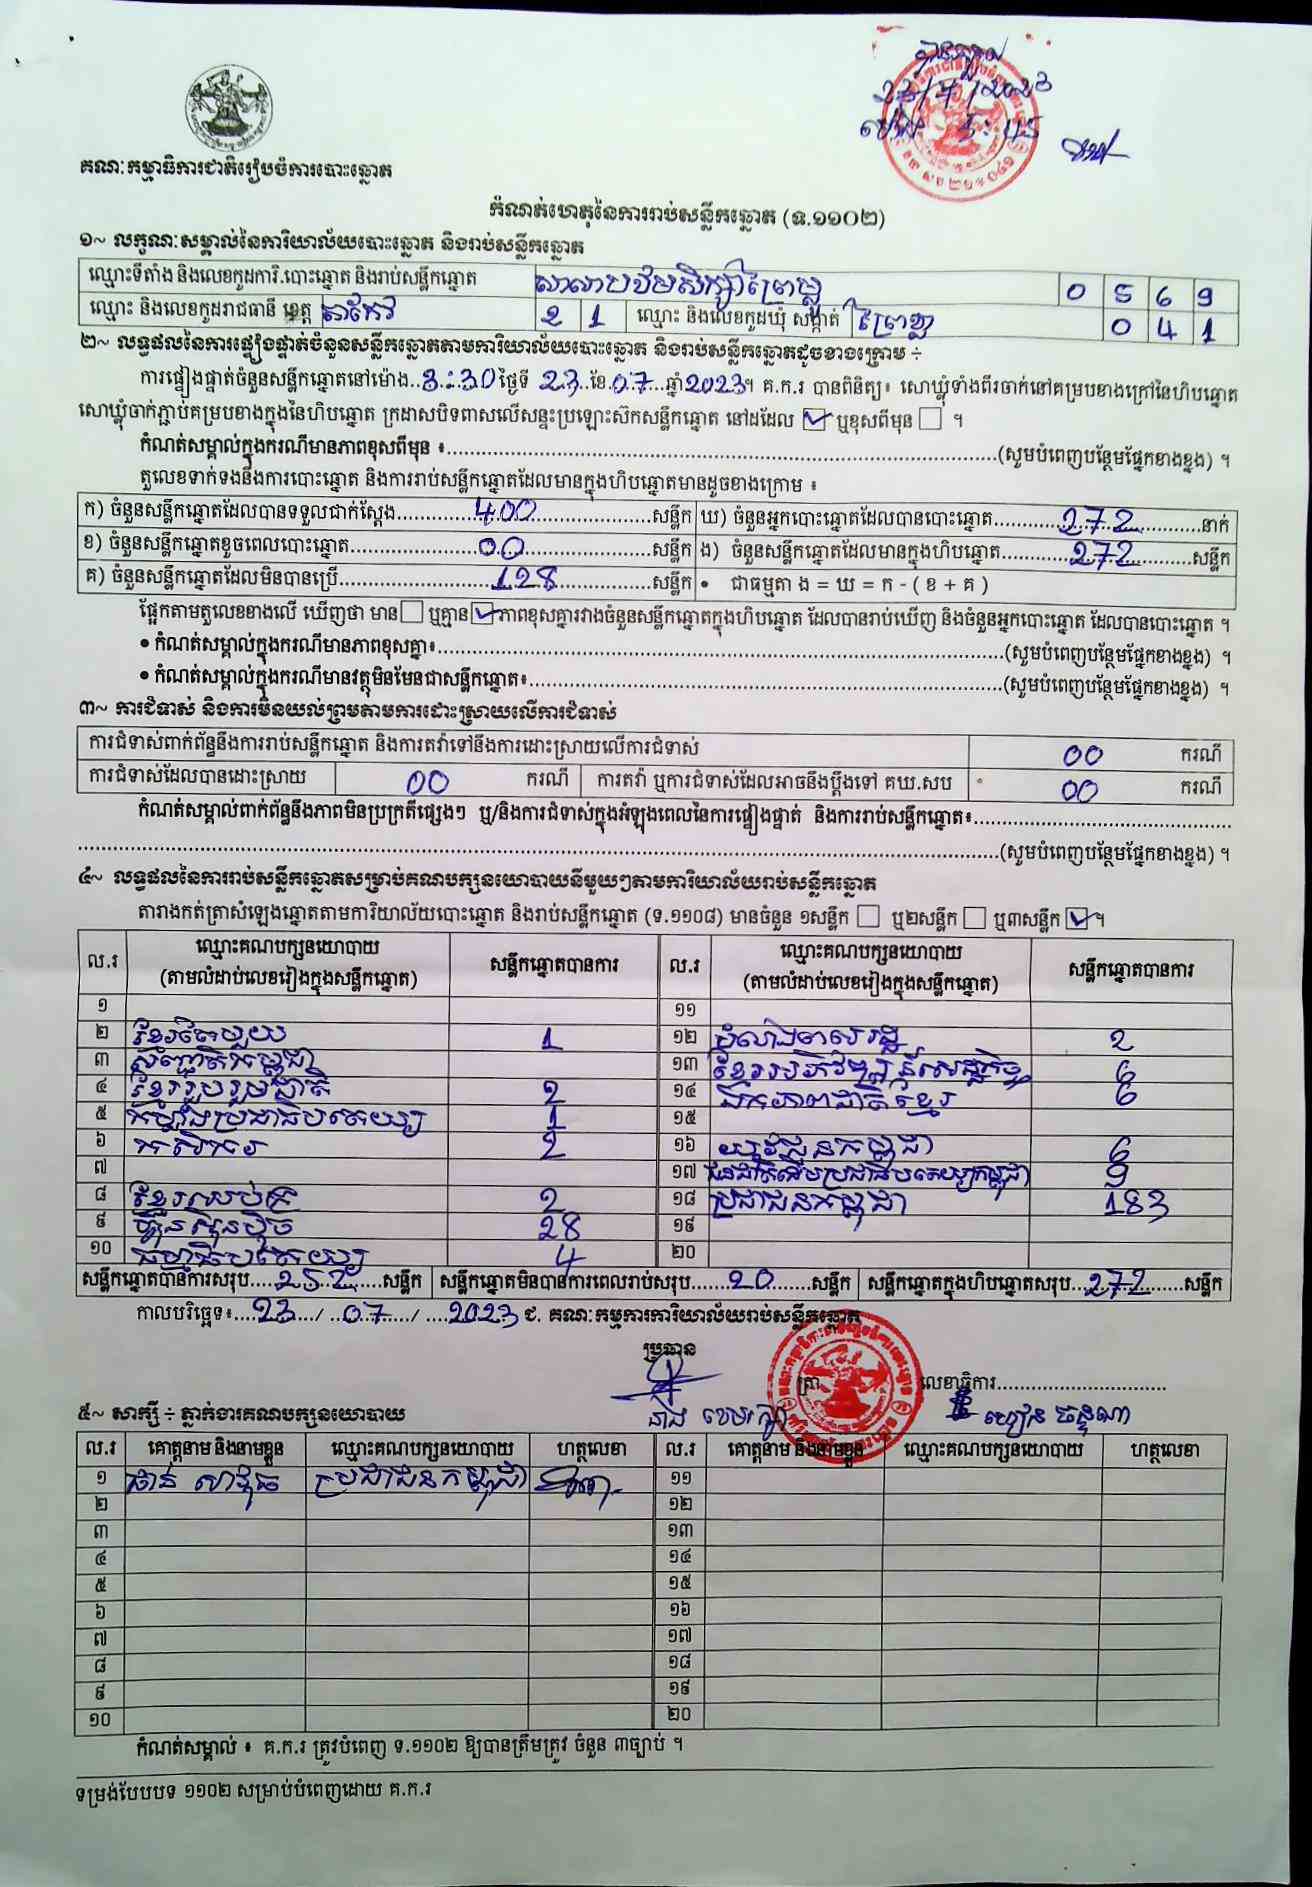 23/7/2023
គណៈកម្មាធិការជាតិរៀបចំការបោះឆ្នោត
កំណត់ហេតុនៃការរាប់សន្លឹកឆ្នោត (ទ.១១០២)
១~ លក្ខណៈសម្គាល់នៃការិយាល័យបោះឆ្នោត និងរាប់សន្លឹកឆ្នោត
ឈ្មោះទីតាំង និងលេខកូដការិ.បោះឆ្នោត និងរាប់សន្លឹកឆ្នោត សាលាបឋមសិក្សាព្រៃម្លូ 0 5 6 9
ឈ្មោះ និងលេខកូដរាជធានី ខេត្ត តាកែវ 2 1 ឈ្មោះ និងលេខកូដឃុំ សង្កាត់ ព្រៃខ្លា 0 4 1
២~ លទ្ធផលនៃការផ្ទៀងផ្ទាត់ចំនួនសន្លឹកឆ្នោតតាមការិយាល័យបោះឆ្នោត និងរាប់សន្លឹកឆ្នោតដូចខាងក្រោម ÷
ការផ្ទៀងផ្ទាត់ចំនួនសន្លឹកឆ្នោតនៅម៉ោង..8:30 ថ្ងៃទី 23 ខែ 07 ឆ្នាំ 2023។ គ.ក.រ បានពិនិត្យ៖ សោឃ្លុំទាំងពីរចាក់នៅគម្របខាងក្រៅនៃហិបឆ្នោត
សោឃ្លុំចាក់ភ្ជាប់គម្របខាងក្នុងនៃហិបឆ្នោត ក្រដាសបិទពាសលើសន្ទះប្រឡោះស៊កសន្លឹកឆ្នោត នៅដដែល ☑ ឬខុសពីមុន ☐ ។
កំណត់សម្គាល់ក្នុងករណីមានភាពខុសពីមុន ៖.....(សូមបំពេញបន្ថែមផ្នែកខាងខ្នង) ។
តួលេខទាក់ទងនឹងការបោះឆ្នោត និងការរាប់សន្លឹកឆ្នោតដែលមានក្នុងហិបឆ្នោតមានដូចខាងក្រោម ៖
ក) ចំនួនសន្លឹកឆ្នោតដែលបានទទួលជាក់ស្តែង.....400.....សន្លឹក ឃ) ចំនួនអ្នកបោះឆ្នោតដែលបានបោះឆ្នោត.....272.....នាក់
ខ) ចំនួនសន្លឹកឆ្នោតខូចពេលបោះឆ្នោត.....00.....សន្លឹក ង) ចំនួនសន្លឹកឆ្នោតដែលមានក្នុងហិបឆ្នោត.....272.....សន្លឹក
គ) ចំនួនសន្លឹកឆ្នោតដែលមិនបានប្រើ.....128.....សន្លឹក • ជាធម្មតា ង = ឃ = ក - ( ខ + គ )
ផ្អែកតាមតួលេខខាងលើ ឃើញថា មាន ☐ ឬគ្មាន ☑ ភាពខុសគ្នារវាងចំនួនសន្លឹកឆ្នោតក្នុងហិបឆ្នោត ដែលបានរាប់ឃើញ និងចំនួនអ្នកបោះឆ្នោត ដែលបានបោះឆ្នោត ។
• កំណត់សម្គាល់ក្នុងករណីមានភាពខុសគ្នា៖.....(សូមបំពេញបន្ថែមផ្នែកខាងខ្នង) ។
• កំណត់សម្គាល់ក្នុងករណីមានវត្ថុមិនមែនជាសន្លឹកឆ្នោត៖.....(សូមបំពេញបន្ថែមផ្នែកខាងខ្នង) ។
៣~ ការជំទាស់ និងការមិនយល់ព្រមតាមការដោះស្រាយលើការជំទាស់
ការជំទាស់ពាក់ព័ន្ធនឹងការរាប់សន្លឹកឆ្នោត និងការតវ៉ាទៅនឹងការដោះស្រាយលើការជំទាស់ 00 ករណី
ការជំទាស់ដែលបានដោះស្រាយ 00 ករណី ការតវ៉ា ឬការជំទាស់ដែលអាចនឹងប្តឹងទៅ គឃ.សប 00 ករណី
កំណត់សម្គាល់ពាក់ព័ន្ធនឹងភាពមិនប្រក្រតីផ្សេងៗ ឬ/និងការជំទាស់ក្នុងអំឡុងពេលនៃការផ្ទៀងផ្ទាត់ និងការរាប់សន្លឹកឆ្នោត៖.....
.....(សូមបំពេញបន្ថែមផ្នែកខាងខ្នង) ។
៤~ លទ្ធផលនៃការរាប់សន្លឹកឆ្នោតសម្រាប់គណបក្សនយោបាយនីមួយៗតាមការិយាល័យរាប់សន្លឹកឆ្នោត
តារាងកត់ត្រាសំឡេងឆ្នោតតាមការិយាល័យបោះឆ្នោត និងរាប់សន្លឹកឆ្នោត (ទ.១១០៨) មានចំនួន ១សន្លឹក ☐ ឬ២សន្លឹក ☐ ឬ៣សន្លឹក ☑ ។
ល.រ ឈ្មោះគណបក្សនយោបាយ (តាមលំដាប់លេខរៀងក្នុងសន្លឹកឆ្នោត) សន្លឹកឆ្នោតបានការ ល.រ ឈ្មោះគណបក្សនយោបាយ (តាមលំដាប់លេខរៀងក្នុងសន្លឹកឆ្នោត) សន្លឹកឆ្នោតបានការ
១ ១១
២ ខ្មែរតែមួយ 1 ១២ សំបុកឃ្មុំ 2
៣ សញ្ជាតិកម្ពុជា ១៣ ខ្មែរអភិវឌ្ឍន៍សេដ្ឋកិច្ច 6
៤ ខ្មែររួបរួមជាតិ 2 ១៤ ឯកភាពជាតិខ្មែរ 6
៥ កម្លាំងប្រជាធិបតេយ្យ 1 ១៥
៦ កសិករ 2 ១៦ យុវជនកម្ពុជា 6
៧ ១៧ ជនជាតិដើមប្រជាធិបតេយ្យកម្ពុជា 9
៨ ខ្មែរឈប់ក្រ 2 ១៨ ប្រជាជនកម្ពុជា 183
៩ ហ្វ៊ុនស៊ិនប៉ិច 28 ១៩
១០ ធម្មាធិបតេយ្យ 4 ២០
សន្លឹកឆ្នោតបានការសរុប....252....សន្លឹក សន្លឹកឆ្នោតមិនបានការពេលរាប់សរុប....20....សន្លឹក សន្លឹកឆ្នោតក្នុងហិបឆ្នោតសរុប..272..សន្លឹក
កាលបរិច្ឆេទ៖....23..../..07..../....2023 ជ. គណៈកម្មការការិយាល័យរាប់សន្លឹកឆ្នោត
ប្រធាន
ត្រា លេខាធិការ.....
៥~ សាក្សី ÷ ភ្នាក់ងារគណបក្សនយោបាយ
ល.រ គោត្តនាម និងនាមខ្លួន ឈ្មោះគណបក្សនយោបាយ ហត្ថលេខា ល.រ គោត្តនាម និងនាមខ្លួន ឈ្មោះគណបក្សនយោបាយ ហត្ថលេខា
១ ប្រជាជនកម្ពុជា ១១
២ ១២
៣ ១៣
៤ ១៤
៥ ១៥
៦ ១៦
៧ ១៧
៨ ១៨
៩ ១៩
១០ ២០
កំណត់សម្គាល់ ៖ គ.ក.រ ត្រូវបំពេញ ទ.១១០២ ឱ្យបានត្រឹមត្រូវ ចំនួន ៣ច្បាប់ ។
ទម្រង់បែបបទ ១១០២ សម្រាប់បំពេញដោយ គ.ក.រ